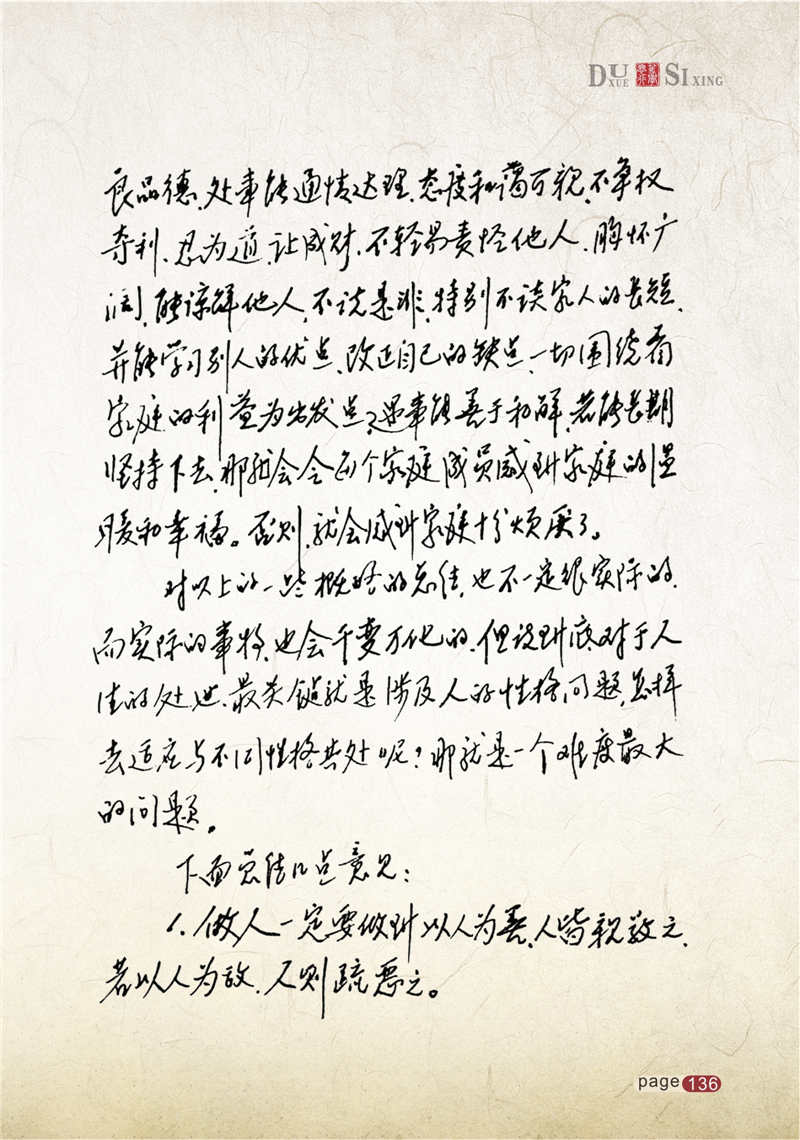 DUXUE SIXING
良品德、处事能通情达理、态度和蔼可亲、不争权
夺利、忍为道、让成财、不轻易责怪他人、胸怀广
阔、能谅解他人、不说是非、特别不谈家人的长短、
并能学习别人的优点、改正自己的缺点、一切围绕着
家庭的利益为出发点、遇事能善于和解、若能长期
坚持下去、那就会令每个家庭成员感到家庭的温
暖和幸福。否则、就会感到家庭十分烦厌了。
对以上的一些概略的总结、也不一定很实际的、
而实际的事物、也会千变万化的、但说到底对于人
生的处世、最关键就是涉及人的性格问题、怎样
去适应与不同性格共处呢？那就是一个难度最大
的问题。
下面总结几点意见：
1、做人一定要做到以人为善、人皆亲敬之、
若以人为敌、人则疏恶之。
page 136